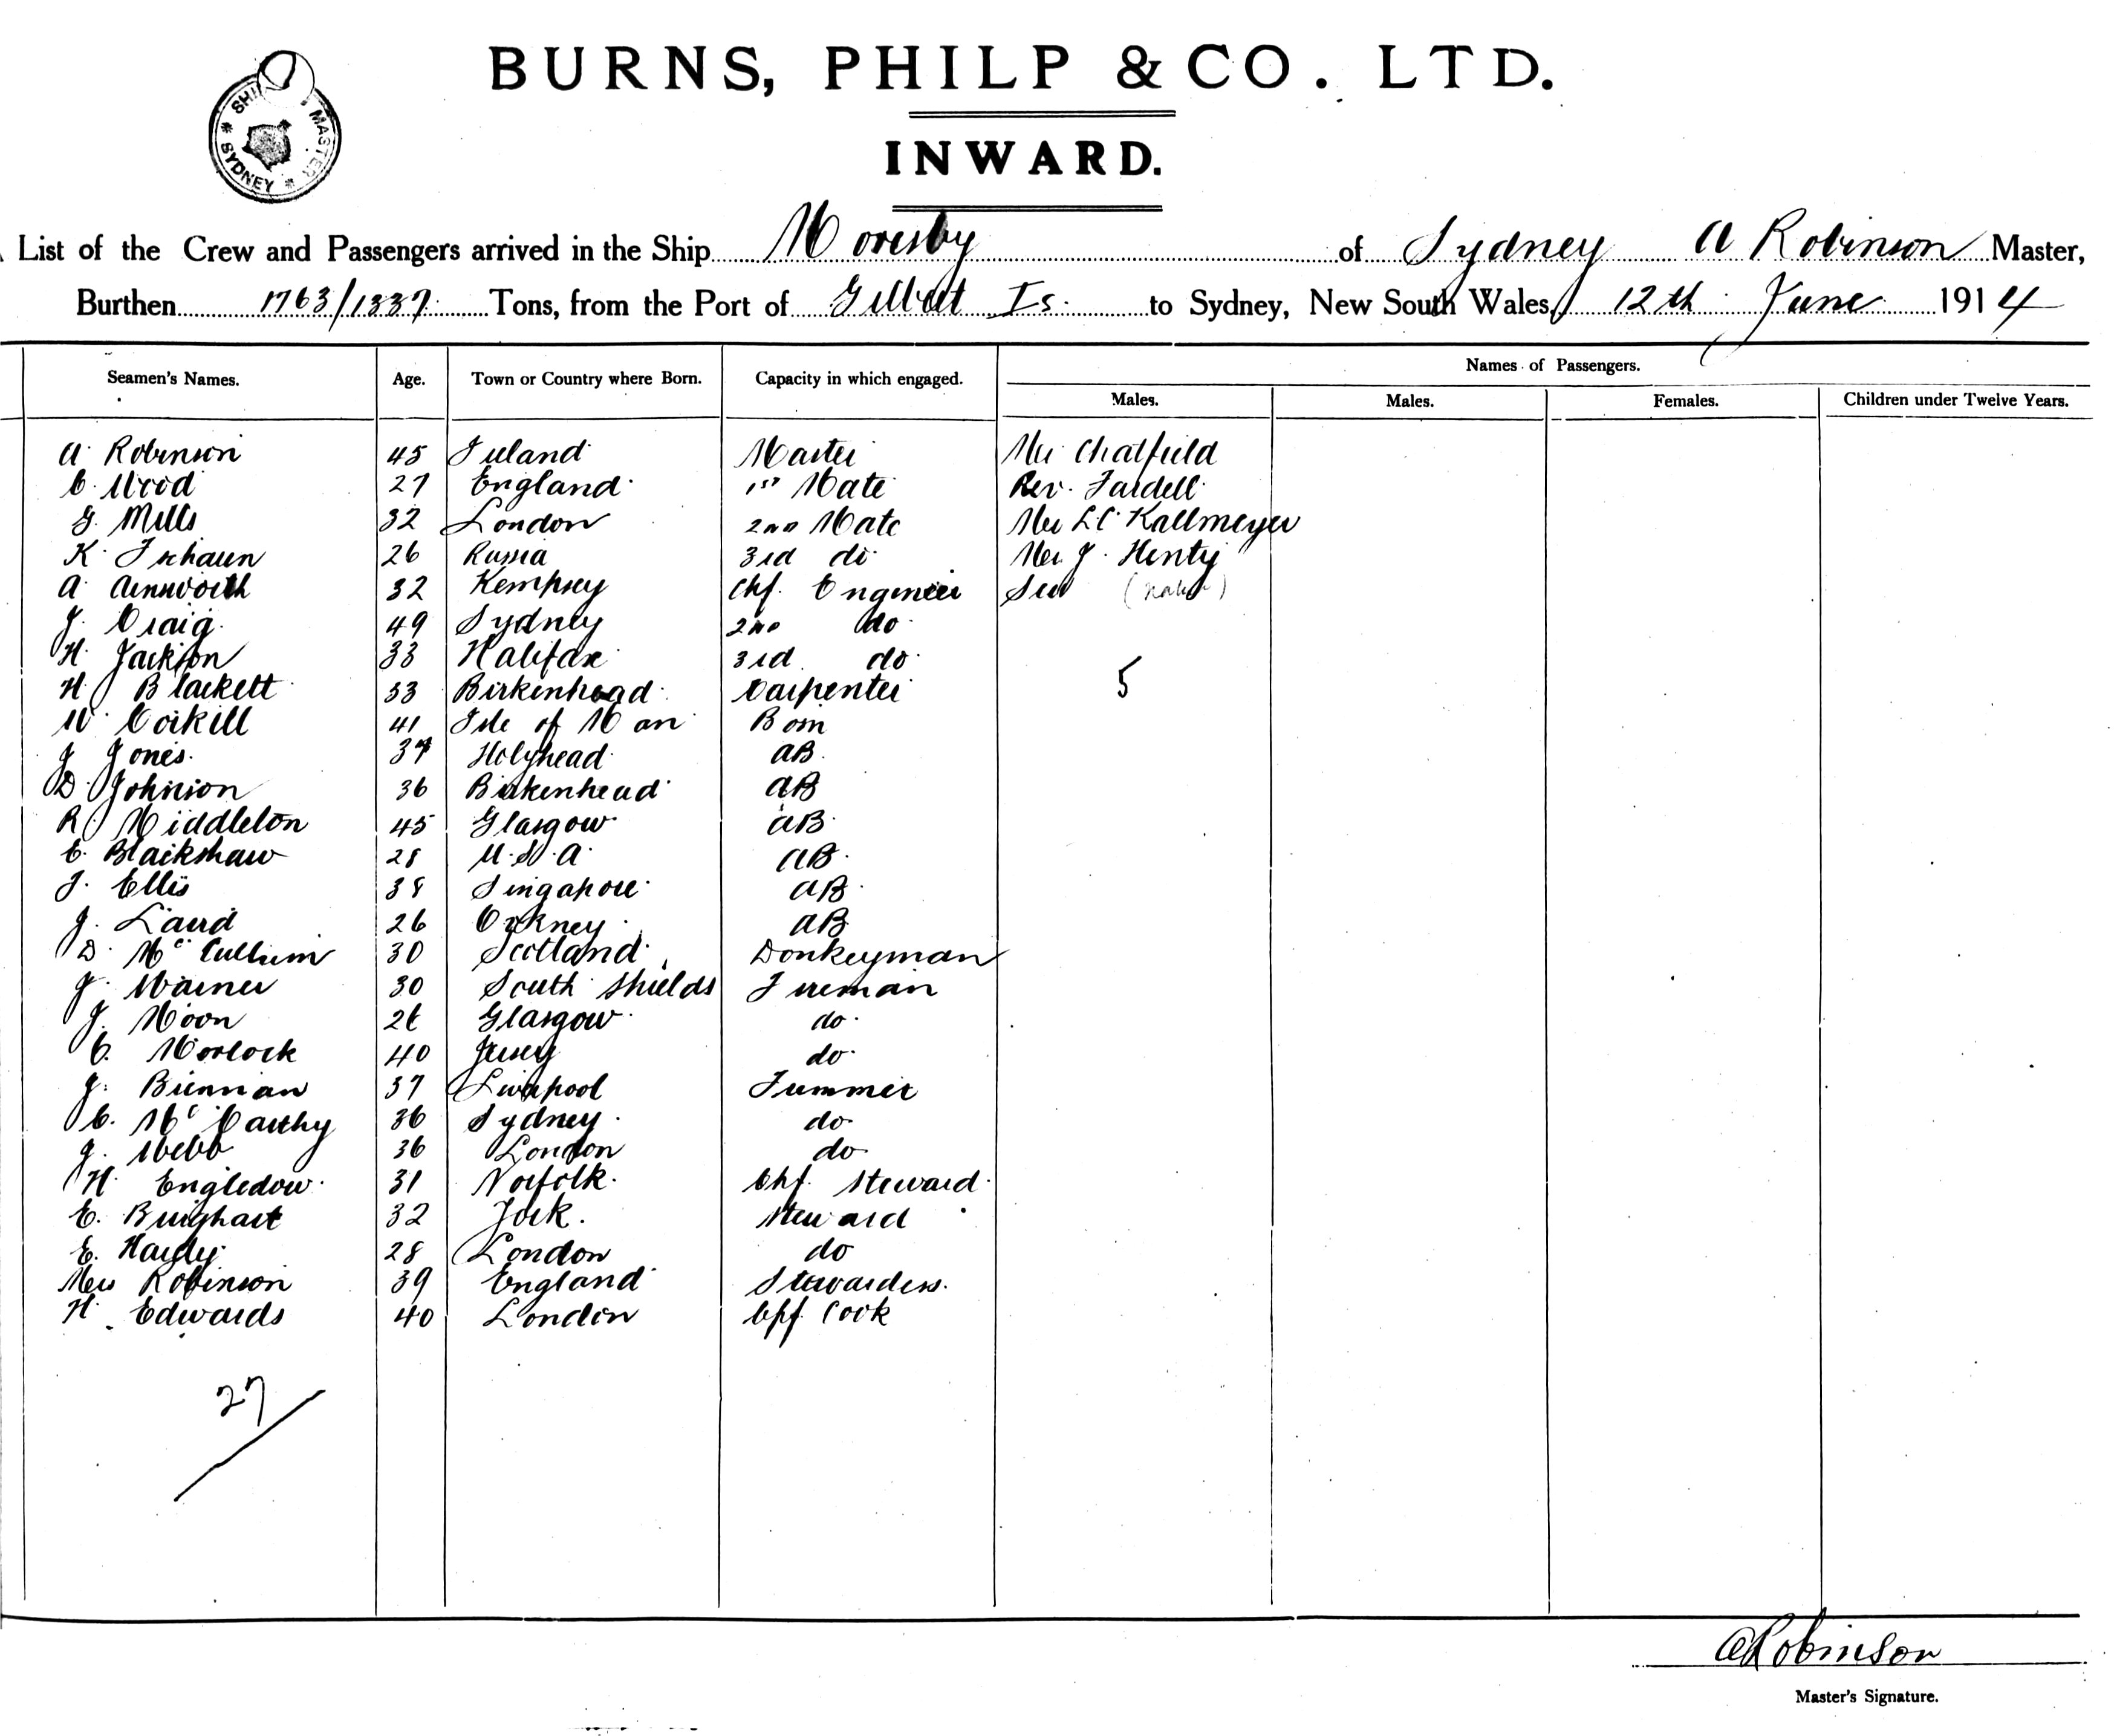 BURNS, PHILP & CO. LTD.
SHI MASTER * SYDNEY *
INWARD.
List of the Crew and Passengers arrived in the Ship Moresby of Sydney A Robinson Master,
Burthen 1763/1337 Tons, from the Port of Gilbert Is. to Sydney, New South Wales, 12th June 1914
Names of Passengers.
Seamen's Names. Age. Town or Country where Born. Capacity in which engaged. Males. Males. Females. Children under Twelve Years.
A. Robinson 45 Ireland Master Mr Chatfield
C. Wood 27 England 1st Mate Rev. Fardell
G. Mills 32 London 2nd Mate Mr L C Kallmeyer
K. 26 Russia 3rd do Mr J. Henty
A. Ainsworth 32 Kempsey Chf. Engineer
J. Craig 49 Sydney 2nd do
H. Jackson 33 Halifax 3rd do
H. Blackett 53 Birkenhead Carpenter 5
W. Corkill 41 Isle of Man Bosn
J Jones 37 Holyhead AB
D. Johnson 36 Birkenhead AB
R. Middleton 45 Glasgow AB
E. Blackshaw 28 U.S.A. AB
J. Ellis 38 Singapore AB
J. Laird 26 Orkney AB
D. McCullum 30 Scotland Donkeyman
J. Warner 30 South Shields Fireman
J. Moon 26 Glasgow do
C. Morlock 40 Jersey do
J. Brennan 37 Liverpool Trimmer
C. McCarthy 36 Sydney do
J. Webb 36 London do
H. Engledow 31 Norfolk Chf. Steward
E. 32 York. Steward
E. Hardy 28 London do
Mrs Robinson 39 England Stewardess.
H. Edwards 40 London Chf Cook
27
A Robinson
Master's Signature.